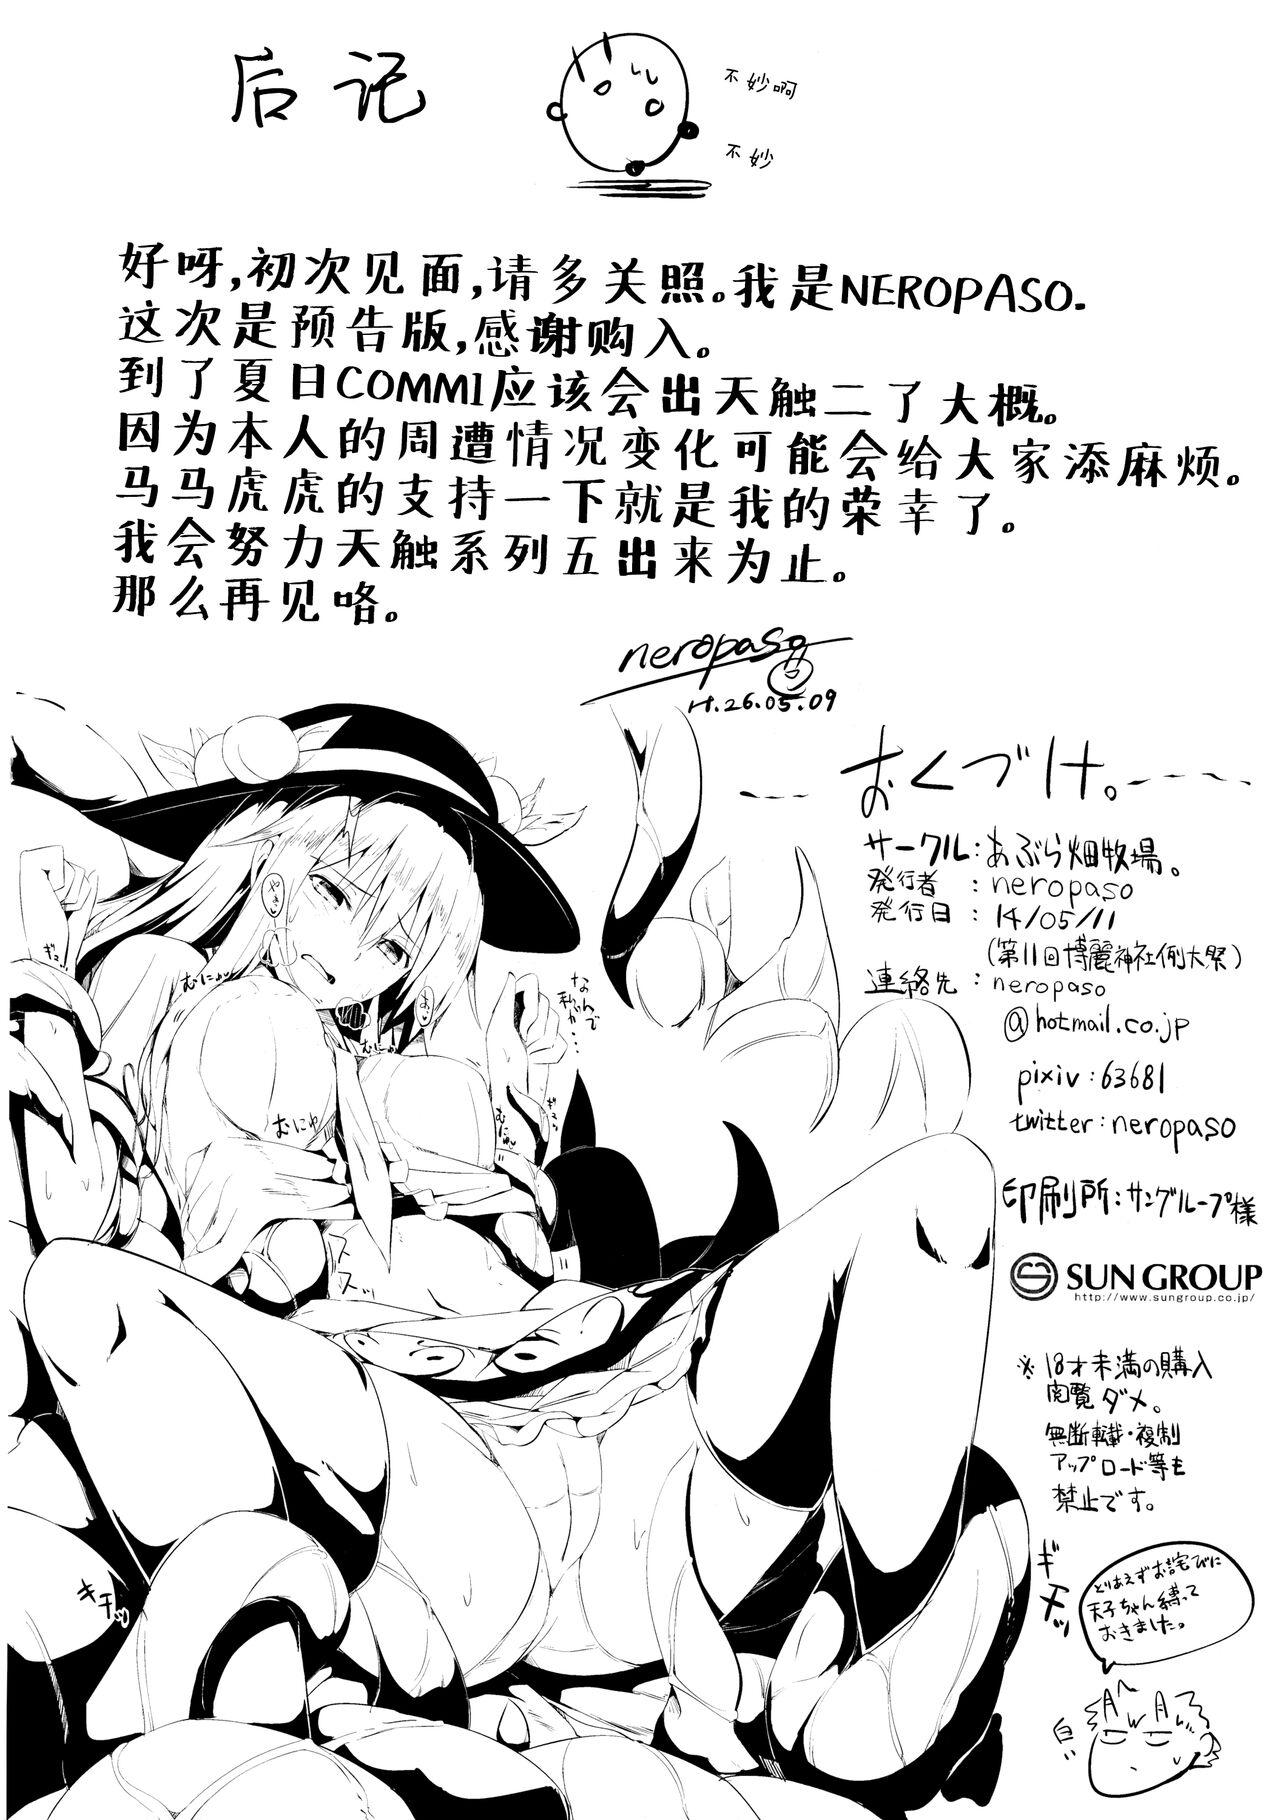 后记
不妙啊
不妙
好呀,初次见面,请多关照。我是NEROPASO.
这次是预告版,感谢购入。
到了夏日COMM1应该会出天触二了大概。
因为本人的周遭情况变化可能会给大家添麻烦。
马马虎虎的支持一下就是我的荣幸了。
我会努力天触系列五出来为止。
那么再见咯。
neropaso
H.26.05.09
おくづけ。
サークル:あぶら畑牧場。
発行者:neropaso
発行日:14/05/11
(第11回博麗神社例大祭)
連絡先:neropaso
@hotmail.co.jp
pixiv:63681
twitter:neropaso
印刷所:サングループ様
SUN GROUP
http://www.sungroup.co.jp/
※18才未満の購入
閲覧ダメ。
無断転載・複制
アップロード等も
禁止です。
とりあえずお詫びに
天子ちゃん縛って
おきました。
なんで
私が・・・
むにゅっ
むにゅ
むにゅ
ギュッ
キチッ
ギチッ